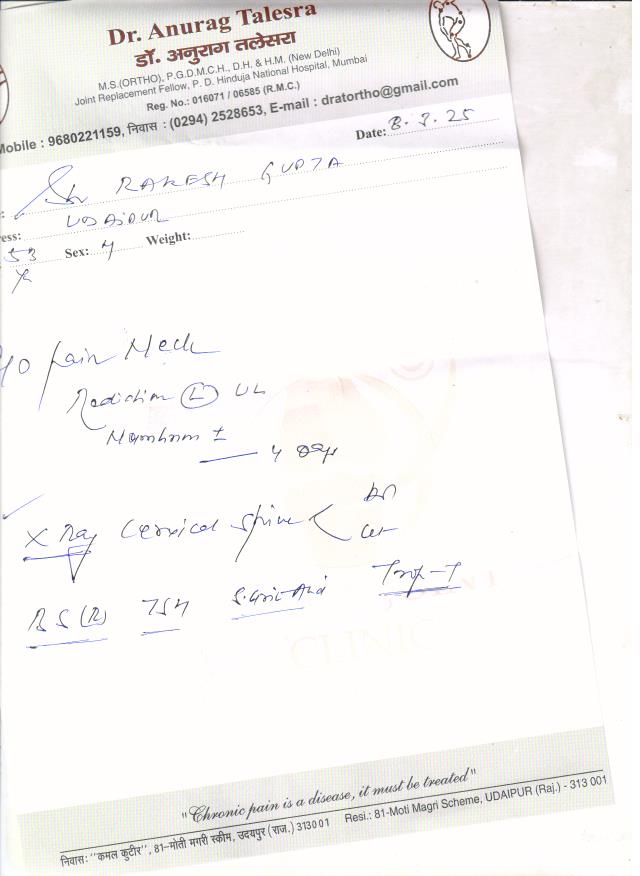 Dr. Anurag Talesra
डॉ. अनुराग तलेसरा
M.S.(ORTHO), P.G.D.M.C.H., D.H. & H.M. (New Delhi)
Joint Replacement Fellow, P. D. Hinduja National Hospital, Mumbai
Reg. No.: 016071 / 06585 (R.M.C.)
Mobile : 9680221159, निवास : (0294) 2528653, E-mail : dratortho@gmail.com
Date: 8.8.25
RAKESH GUPTA
ess: UDAIPUR
53 Sex: Weight:
Pain Neck
Radiation L UL
Numbness ±
4 days
X Ray Cervical Spine < AP
Lat
BS (R) TSH S. Uric Acid Trop-T
CLINIC
"Chronic pain is a disease, it must be treated"
निवास: "कमल कुटीर", 81-मोती मगरी स्कीम, उदयपुर (राज.) 313001 Resi.: 81-Moti Magri Scheme, UDAIPUR (Raj.) - 313 001